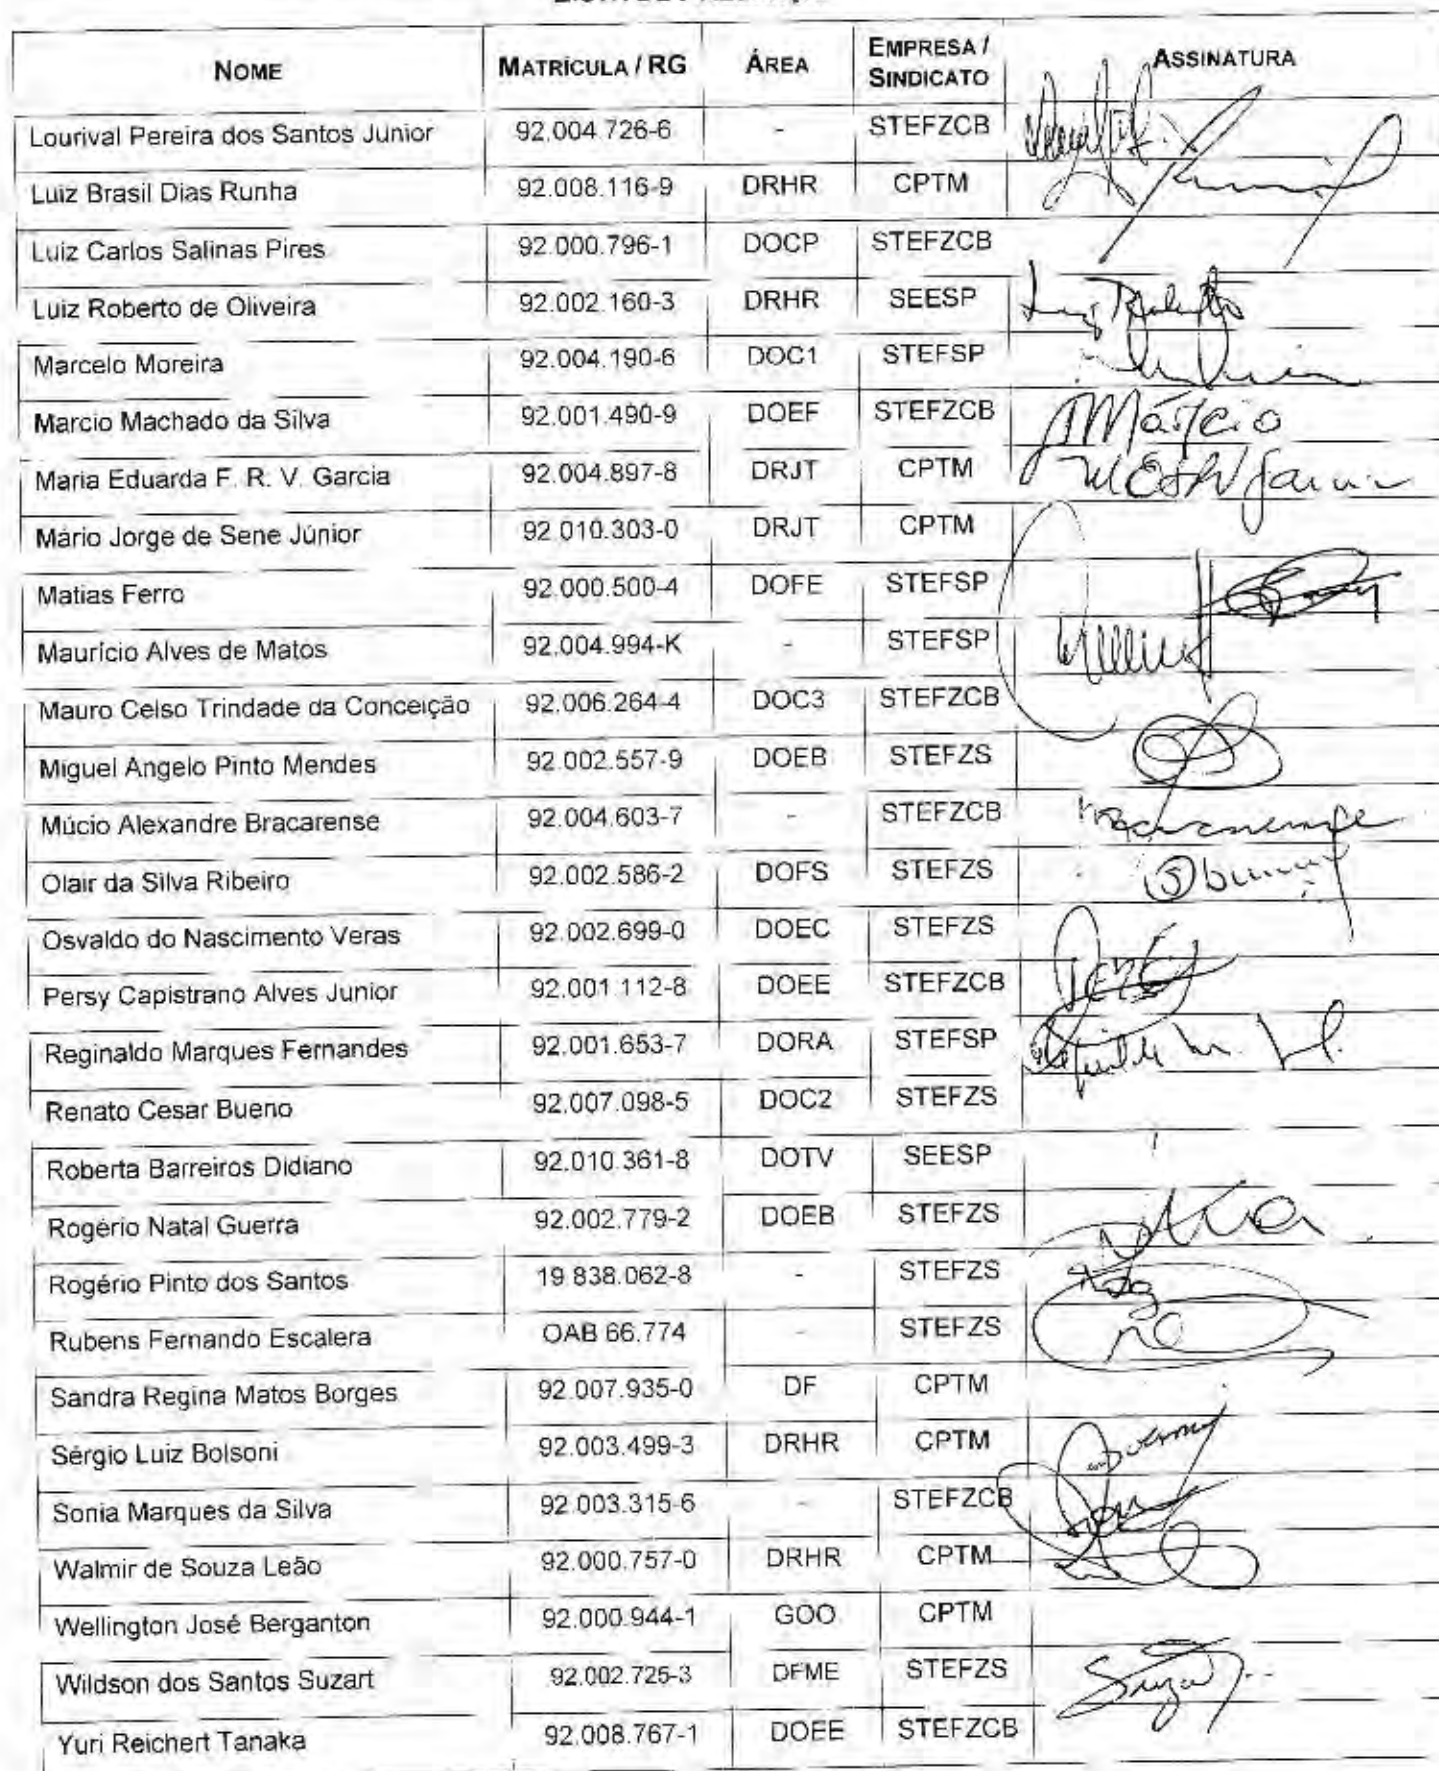 NOME MATRÍCULA / RG ÁREA EMPRESA / SINDICATO ASSINATURA
Lourival Pereira dos Santos Junior 92.004.726-6 - STEFZCB
Luiz Brasil Dias Runha 92.008.116-9 DRHR CPTM
Luiz Carlos Salinas Pires 92.000.796-1 DOCP STEFZCB
Luiz Roberto de Oliveira 92.002.160-3 DRHR SEESP
Marcelo Moreira 92.004.190-6 DOC1 STEFSP
Marcio Machado da Silva 92.001.490-9 DOEF STEFZCB Márcio
Maria Eduarda F. R. V. Garcia 92.004.897-8 DRJT CPTM
Mário Jorge de Sene Júnior 92.010.303-0 DRJT CPTM
Matias Ferro 92.000.500-4 DOFE STEFSP
Maurício Alves de Matos 92.004.994-K - STEFSP
Mauro Celso Trindade da Conceição 92.006.264-4 DOC3 STEFZCB
Miguel Angelo Pinto Mendes 92.002.557-9 DOEB STEFZS
Múcio Alexandre Bracarense 92.004.603-7 - STEFZCB
Olair da Silva Ribeiro 92.002.586-2 DOFS STEFZS
Osvaldo do Nascimento Veras 92.002.699-0 DOEC STEFZS
Persy Capistrano Alves Junior 92.001.112-8 DOEE STEFZCB
Reginaldo Marques Fernandes 92.001.653-7 DORA STEFSP
Renato Cesar Bueno 92.007.098-5 DOC2 STEFZS
Roberta Barreiros Didiano 92.010.361-8 DOTV SEESP
Rogério Natal Guerra 92.002.779-2 DOEB STEFZS
Rogério Pinto dos Santos 19.838.062-8 - STEFZS
Rubens Fernando Escalera OAB 66.774 - STEFZS
Sandra Regina Matos Borges 92.007.935-0 DF CPTM
Sérgio Luiz Bolsoni 92.003.499-3 DRHR CPTM
Sonia Marques da Silva 92.003.315-6 - STEFZCB
Walmir de Souza Leão 92.000.757-0 DRHR CPTM
Wellington José Berganton 92.000.944-1 GOO CPTM
Wildson dos Santos Suzart 92.002.725-3 DFME STEFZS
Yuri Reichert Tanaka 92.008.767-1 DOEE STEFZCB